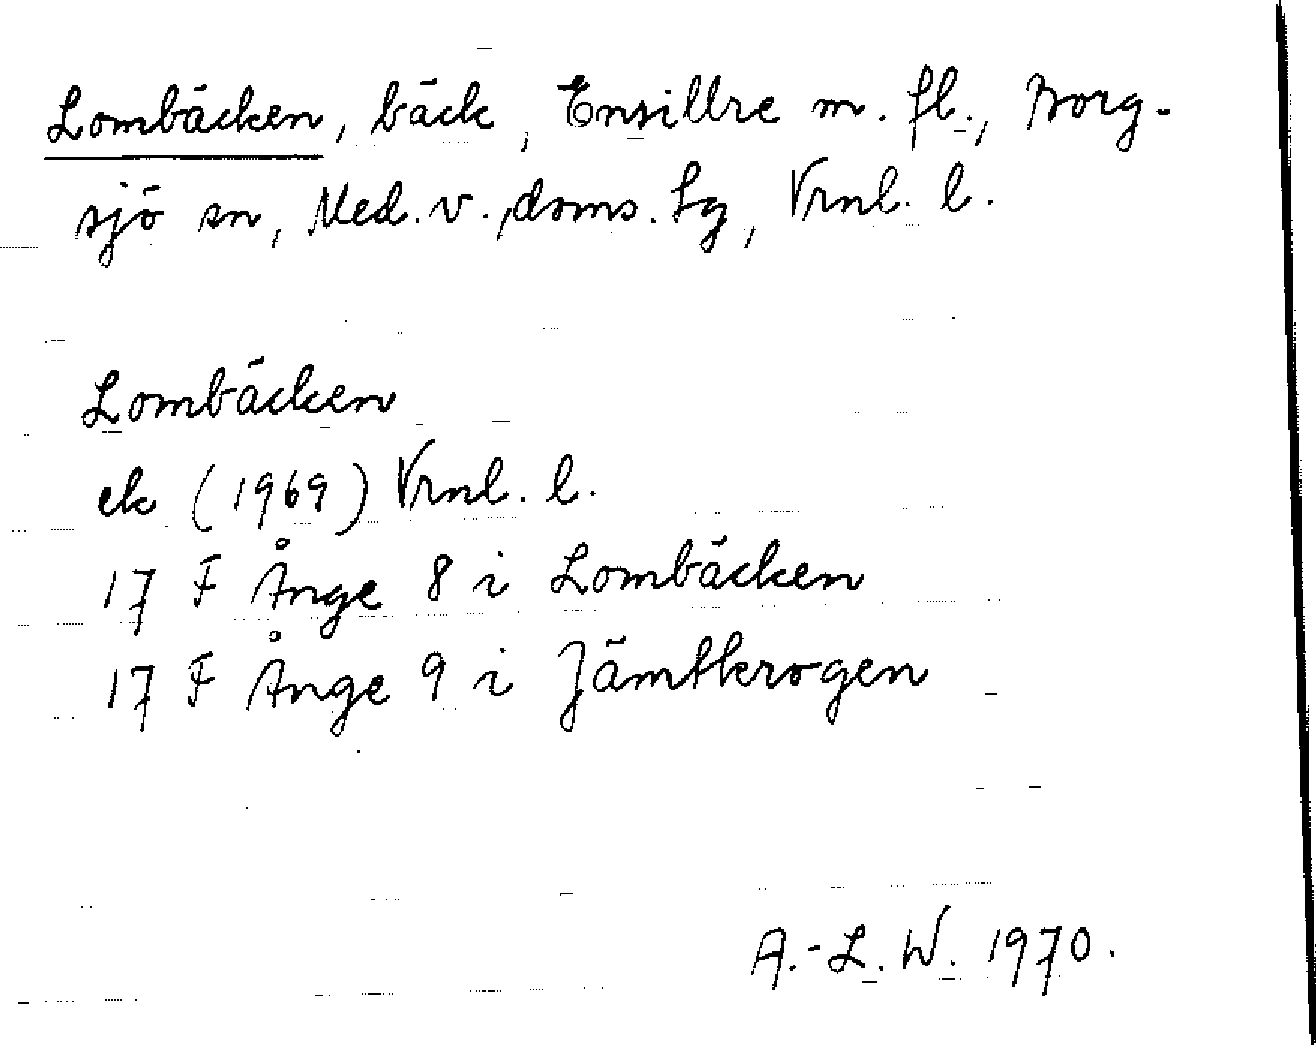 Lombäcken, bäck, Ensillre m. fl., Borg-
sjö sn, Med. v., doms. tg, Vrnl. l.
Lombäcken
ek (1969) Vrnl. l.
17 F Ånge 8 i Lombäcken
17 F Ånge 9 i Jämtkrogen
A.-L. W. 1970.